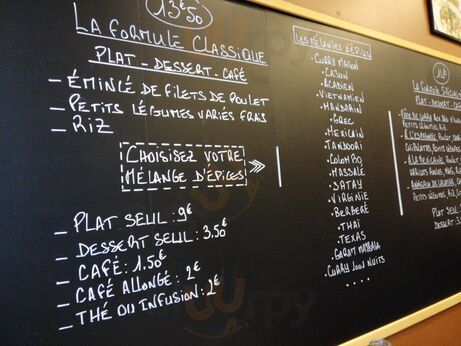 13€50
LA FORMULE CLASSIQUE
PLAT - DESSERT - CAFÉ
- ÉMINCÉ DE FILETS DE POULET
- PETITS LÉGUMES VARIÉS FRAIS
- RIZ
CHOISISEZ VOTRE
MÉLANGE D'ÉPICES
- PLAT SEUL : 9€
- DESSERT SEUL : 3,50€
- CAFÉ : 1.50€
- CAFÉ ALLONGÉ : 2€
- THÉ OU INFUSION : 2€
LES MÉLANGES D'ÉPICES
. CURRY MAISON
. CAJUN
. ACADIEN
. VIETNAMIEN
. MANDARIN
. GREC
. MEXICAIN
. TANDOORI
. COLOMBO
. MASSALÉ
. SATAY
. VIRGINIE
. BERBERÉ
. THAÏ
. TEXAS
. GARAM MASSALA
. CURRY 1001 NUITS
. . . .
LA FORMULE
PLAT - DESSERT
PETITS LÉGUMES, RIZ
À L'ESPAGNOLE
À LA MEXICAINE
PETITS LÉGUMES, RIZ
PLAT SEUL
DESSERT